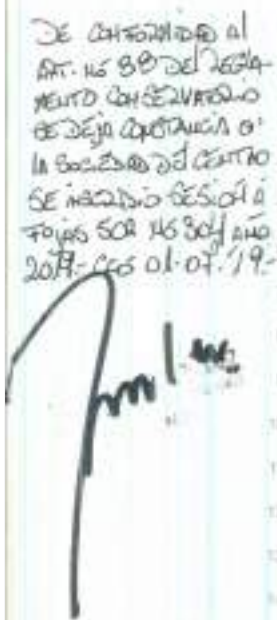 DE CONFORMIDAD Al
ART. Nº 88 DEl REGLA-
MENTO CONSERVATORIO
SE DEJA CONSTANCIA Q'
lA SOCIEDAD DEl CENTRO
SE INSCRIBIO CESIÓN A
FOJAS 502 Nº 304 AÑO
2019.- 01.07.19.-